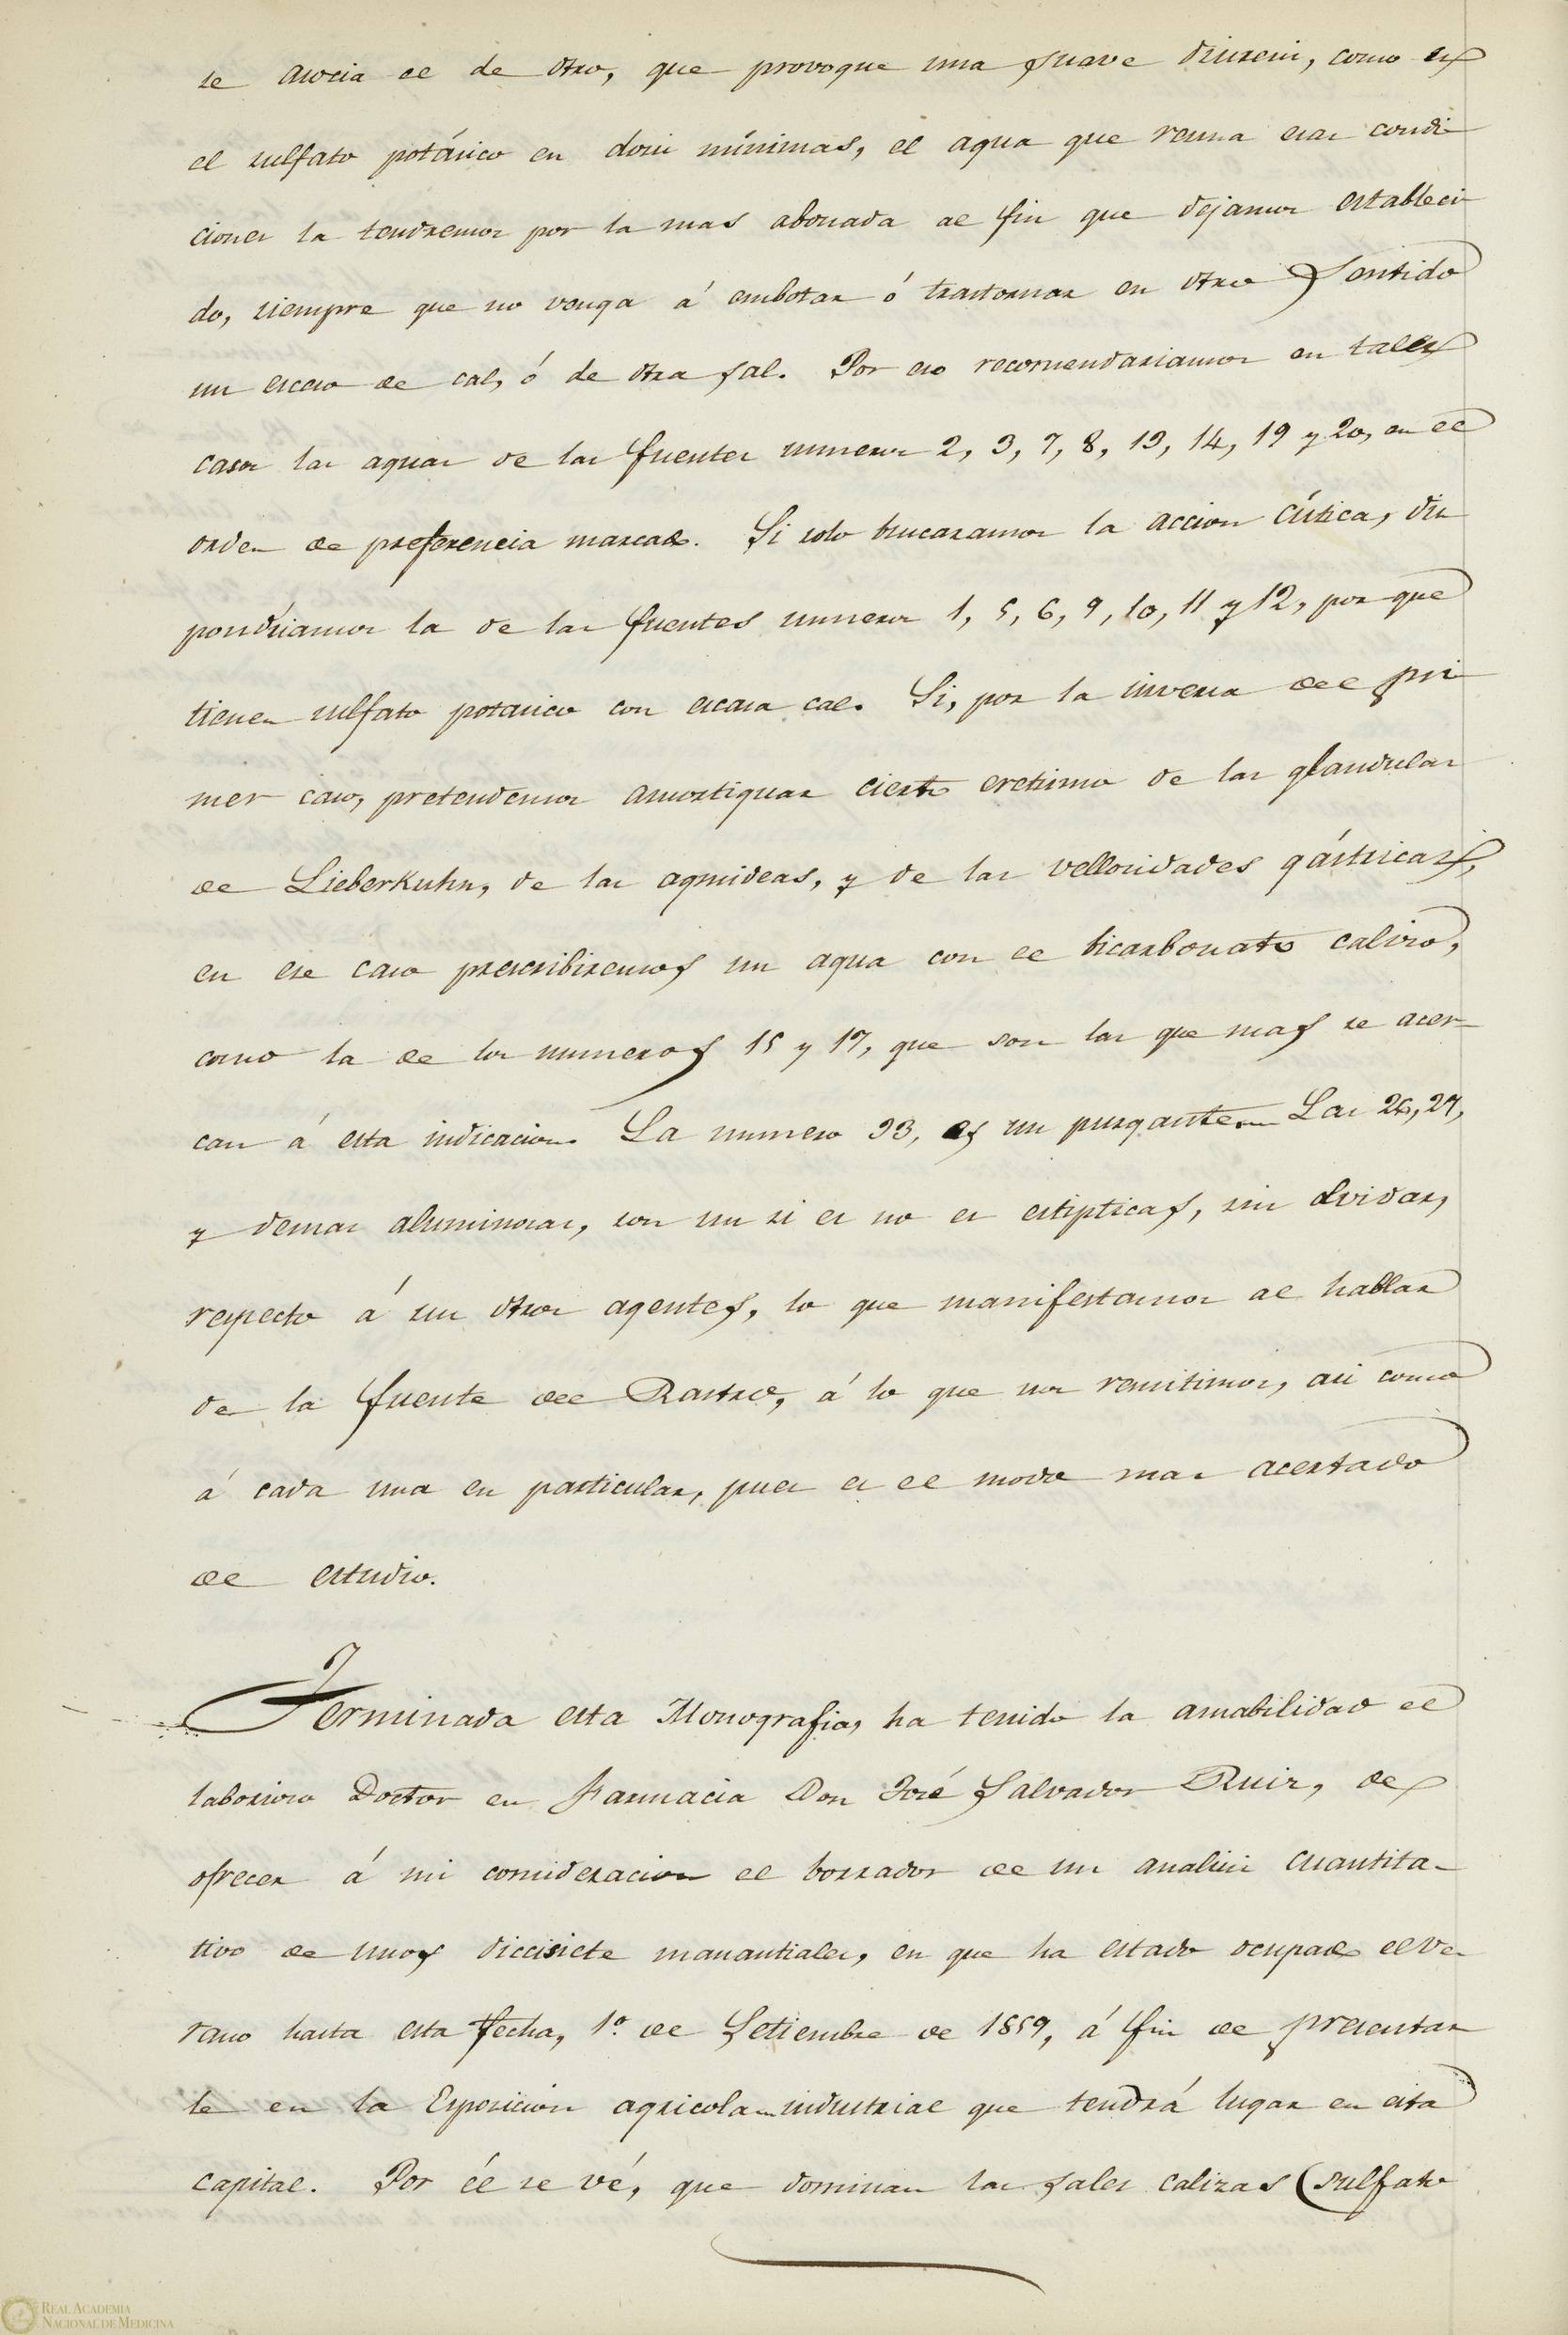 se asocia el de otro, que provoque una suave diuresis, como es
el sulfato potásico en dosis mínimas, el agua que reuna esas condi-
ciones la tendremos por la mas abonada al fin que dejamos estableci-
do, siempre que no venga á embotar ó trastornar en otro sentido
un esceso de cal, ó de otra sal. Por eso recomendariamos en tales
casos las aguas de las fuentes numeros 2, 3, 7, 8, 13, 14, 19 y 20, en el
orden de preferencia marcado. Si solo buscaramos la accion cítrica, dis-
pondríamos la de las fuentes numeros 1, 5, 6, 9, 10, 11 y 12, por que
tienen sulfato potasico con escasa cal. Si, por la inversa del pri-
mer caso, pretendemos amortiguar cierto eretismo de las glandulas
de Lieberkuhn, de las agmideas, y de las vellosidades gástricas,
en ese caso prescribiremos un agua con el bicarbonato calcico,
como la de los numeros 15 y 17, que son las que mas se acer-
can á esta indicacion. La numero 33, es un purgante. Las 26, 27,
y demas aluminosas, son un si es no es estipticas, sin olvidar,
respecto á sus otros agentes, lo que manifestamos al hablar
de la fuente del Rastro, á lo que nos remitimos, asi como
á cada una en particular, pues es el modo mas acertado
de estudio.
Terminada esta Monografia, ha tenido la amabilidad el
laborioso Doctor en Farmacia Don José Salvador Ruiz, de
ofrecer á mi consideracion el borrador de un analisis cuantita-
tivo de unos diecisiete manantiales, en que ha estado ocupado el ve-
rano hasta esta fecha, 1º de Setiembre de 1859, á fin de presentar-
le en la Esposicion agricola-industrial que tendrá lugar en esta
capital. Por él se vé, que dominan las sales calizas (sulfato
REAL ACADEMIA
NACIONAL DE MEDICINA